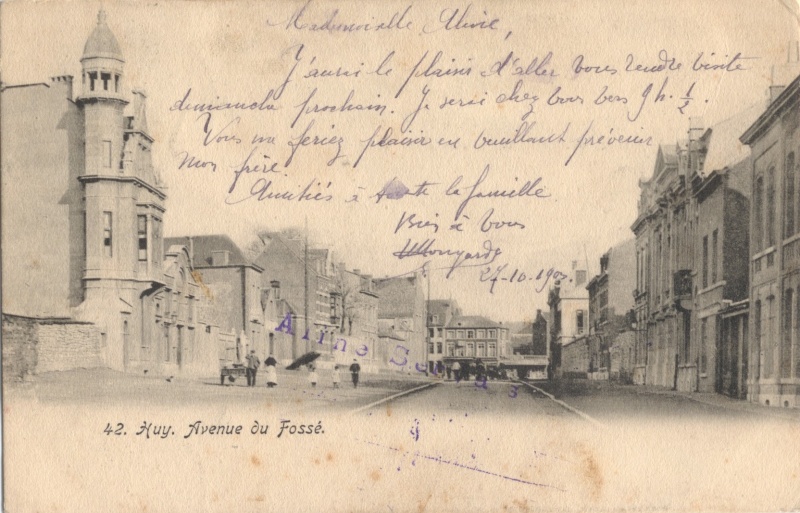 Mademoiselle
J'aurai le plaisir d'aller vous rendre visite
dimanche prochain. Je serai chez vous vers 9h. 1/2.
Vous me feriez plaisir en veuillant prévenir
mon frère.
Amitiés à toute la famille.
Bien à vous
27-10-190
Aline
42. Huy. Avenue du Fossé.